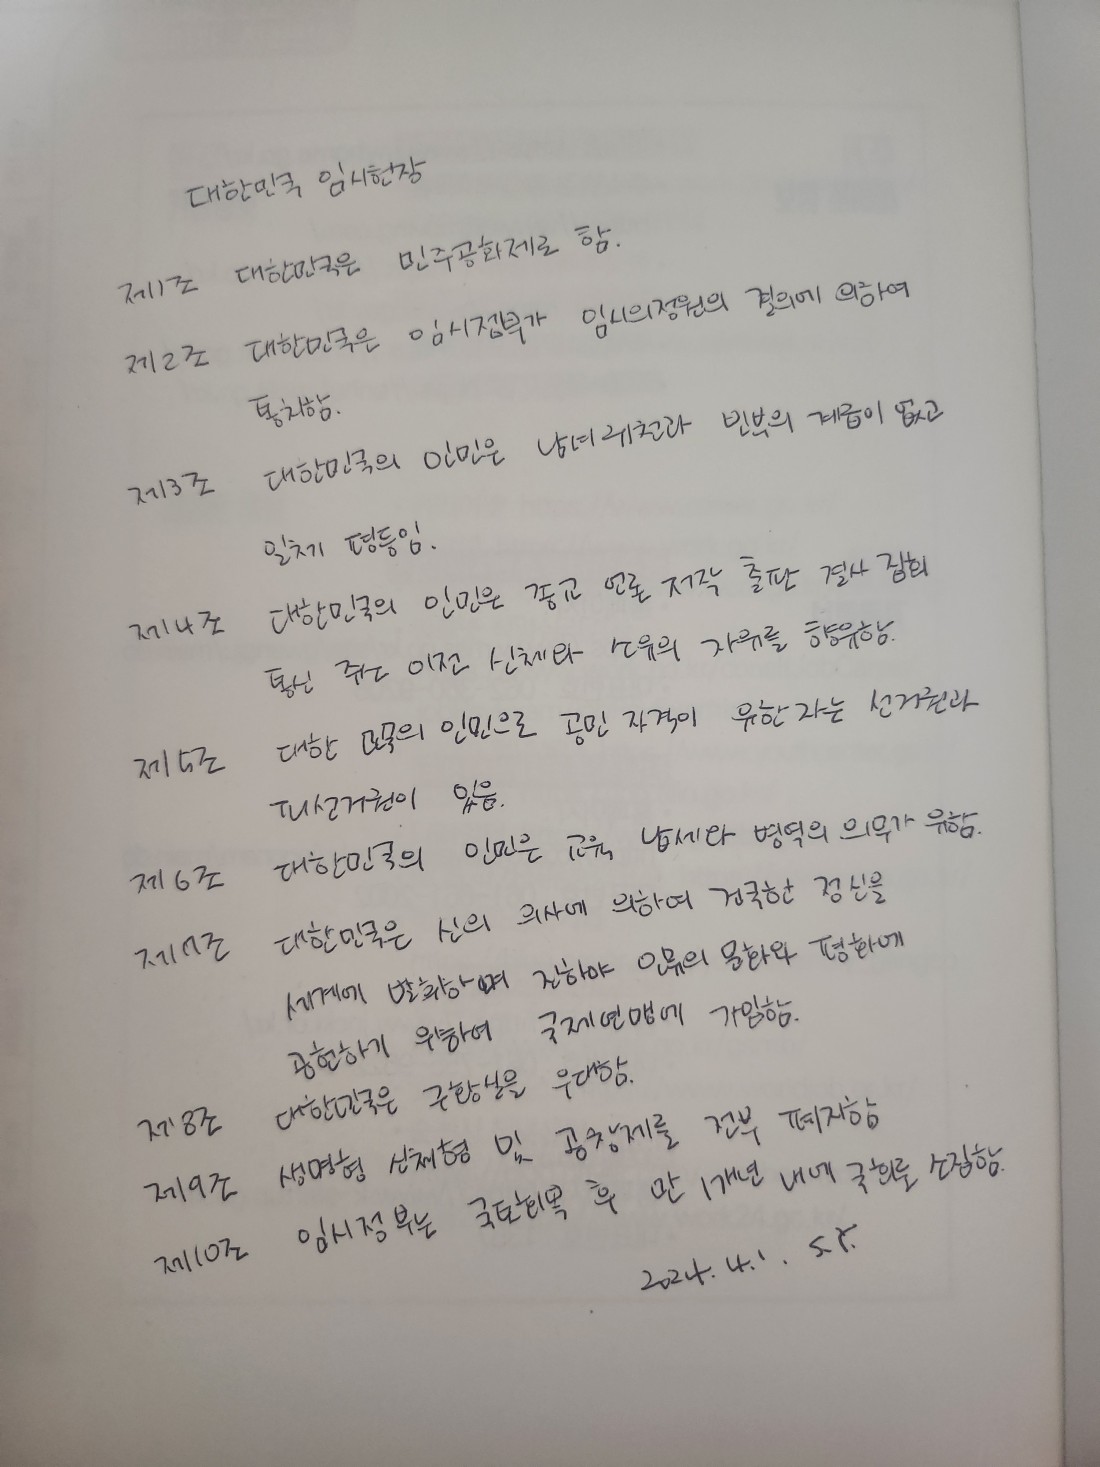 대한민국 임시헌장
제1조 대한민국은 민주공화제로 함.
제2조 대한민국은 임시정부가 임시의정원의 결의에 의하여
통치함.
제3조 대한민국의 인민은 남녀귀천과 빈부의 계급이 없고
일체 평등임.
제4조 대한민국의 인민은 종교 언론 저작 출판 결사 집회
통신 주소 이전 신체와 소유의 자유를 향유함.
제5조 대한민국의 인민으로 공민 자격이 유한 자는 선거권과
피선거권이 있음.
제6조 대한민국의 인민은 교육 납세와 병역의 의무가 유함.
제7조 대한민국은 신의 의사에 의하여 건국한 정신을
세계에 발휘하며 진하야 인류의 문화와 평화에
공헌하기 위하여 국제연맹에 가입함.
제8조 대한민국은 구황실을 우대함.
제9조 생명형 신체형 및 공창제를 전부 폐지함
제10조 임시정부는 국토회복 후 만 1개년 내에 국회를 소집함.
2024.4.1.